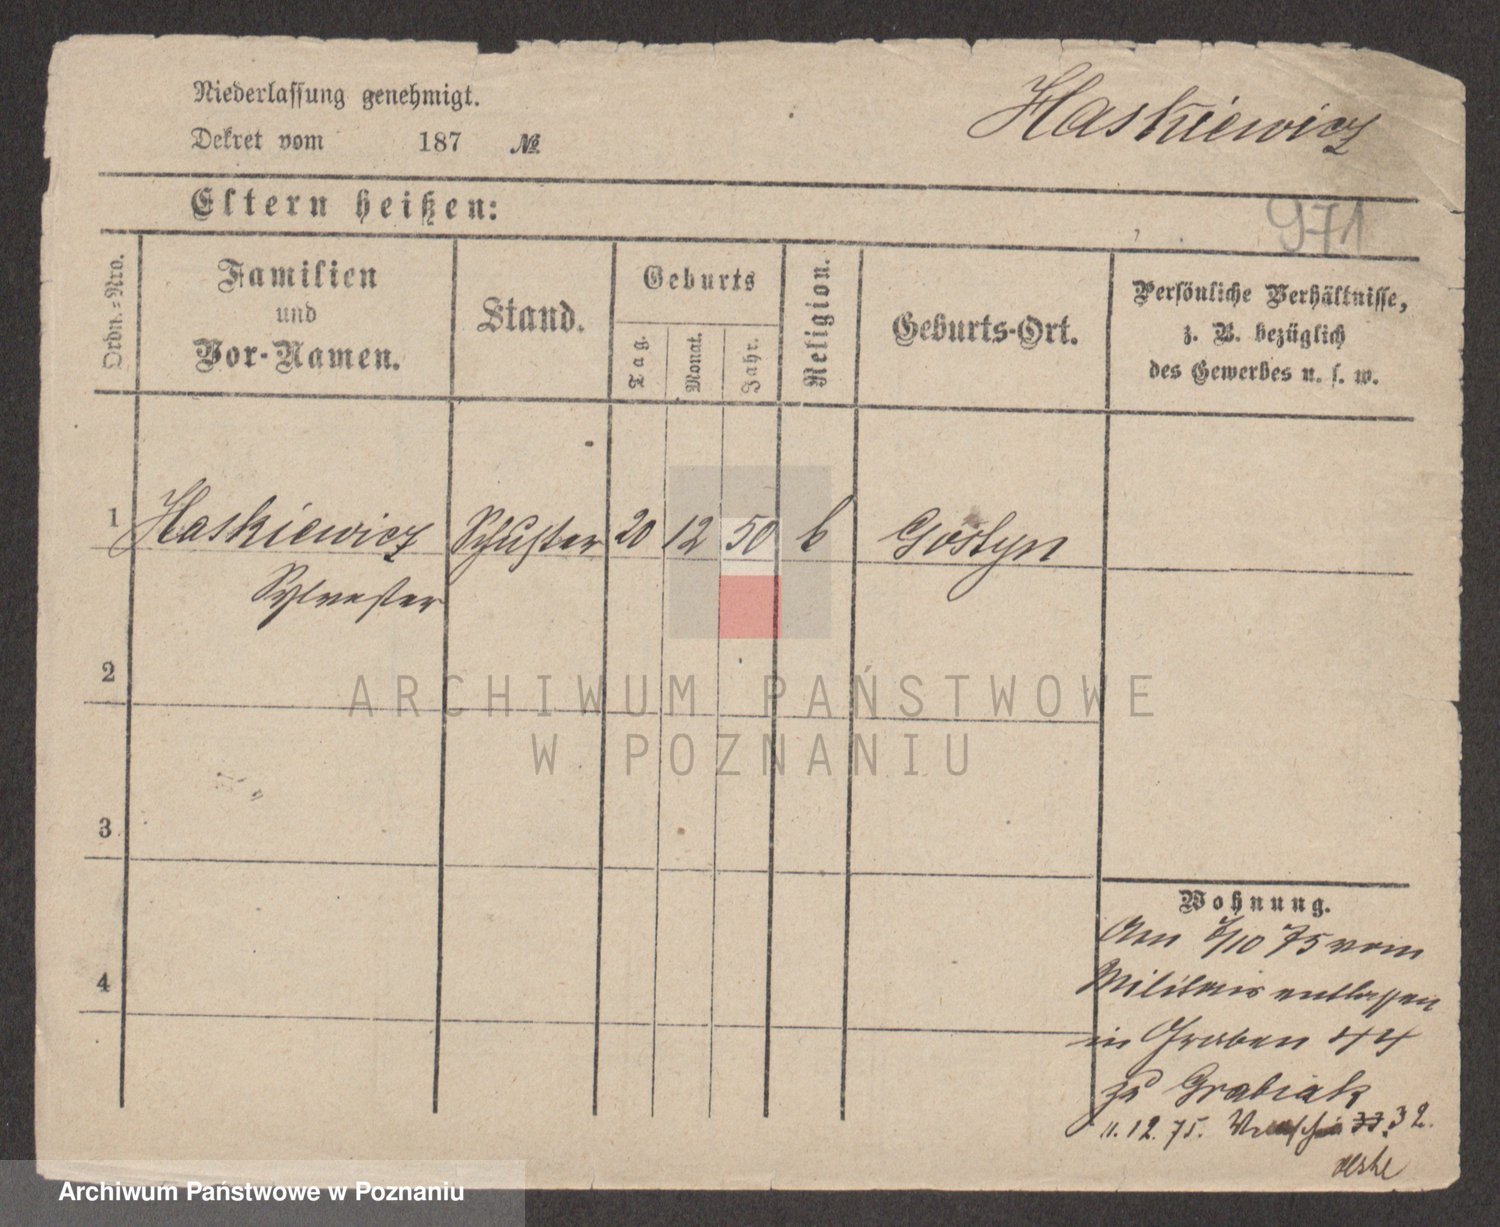 Niederlassung genehmigt.
Haskiewicz
Dekret vom 187 №
Eltern heißen:
971
Ordn.-Nro.
Familien
und
Vor-Namen.
Stand.
Geburts
Tag.
Monat.
Jahr.
Religion.
Geburts-Ort.
Persönliche Verhältnisse,
z. B. bezüglich
des Gewerbes u. s. w.
1 Haskiewicz Schuster 20 12 50 k Gostyn
Sylvester
2
ARCHIWUM PAŃSTWOWE
W POZNANIU
3
Wohnung.
Am /10 75 vom
Militair entlassen
4
in Graben 44
zu Grabiak
11.12.75. 32.
Archiwum Państwowe w Poznaniu